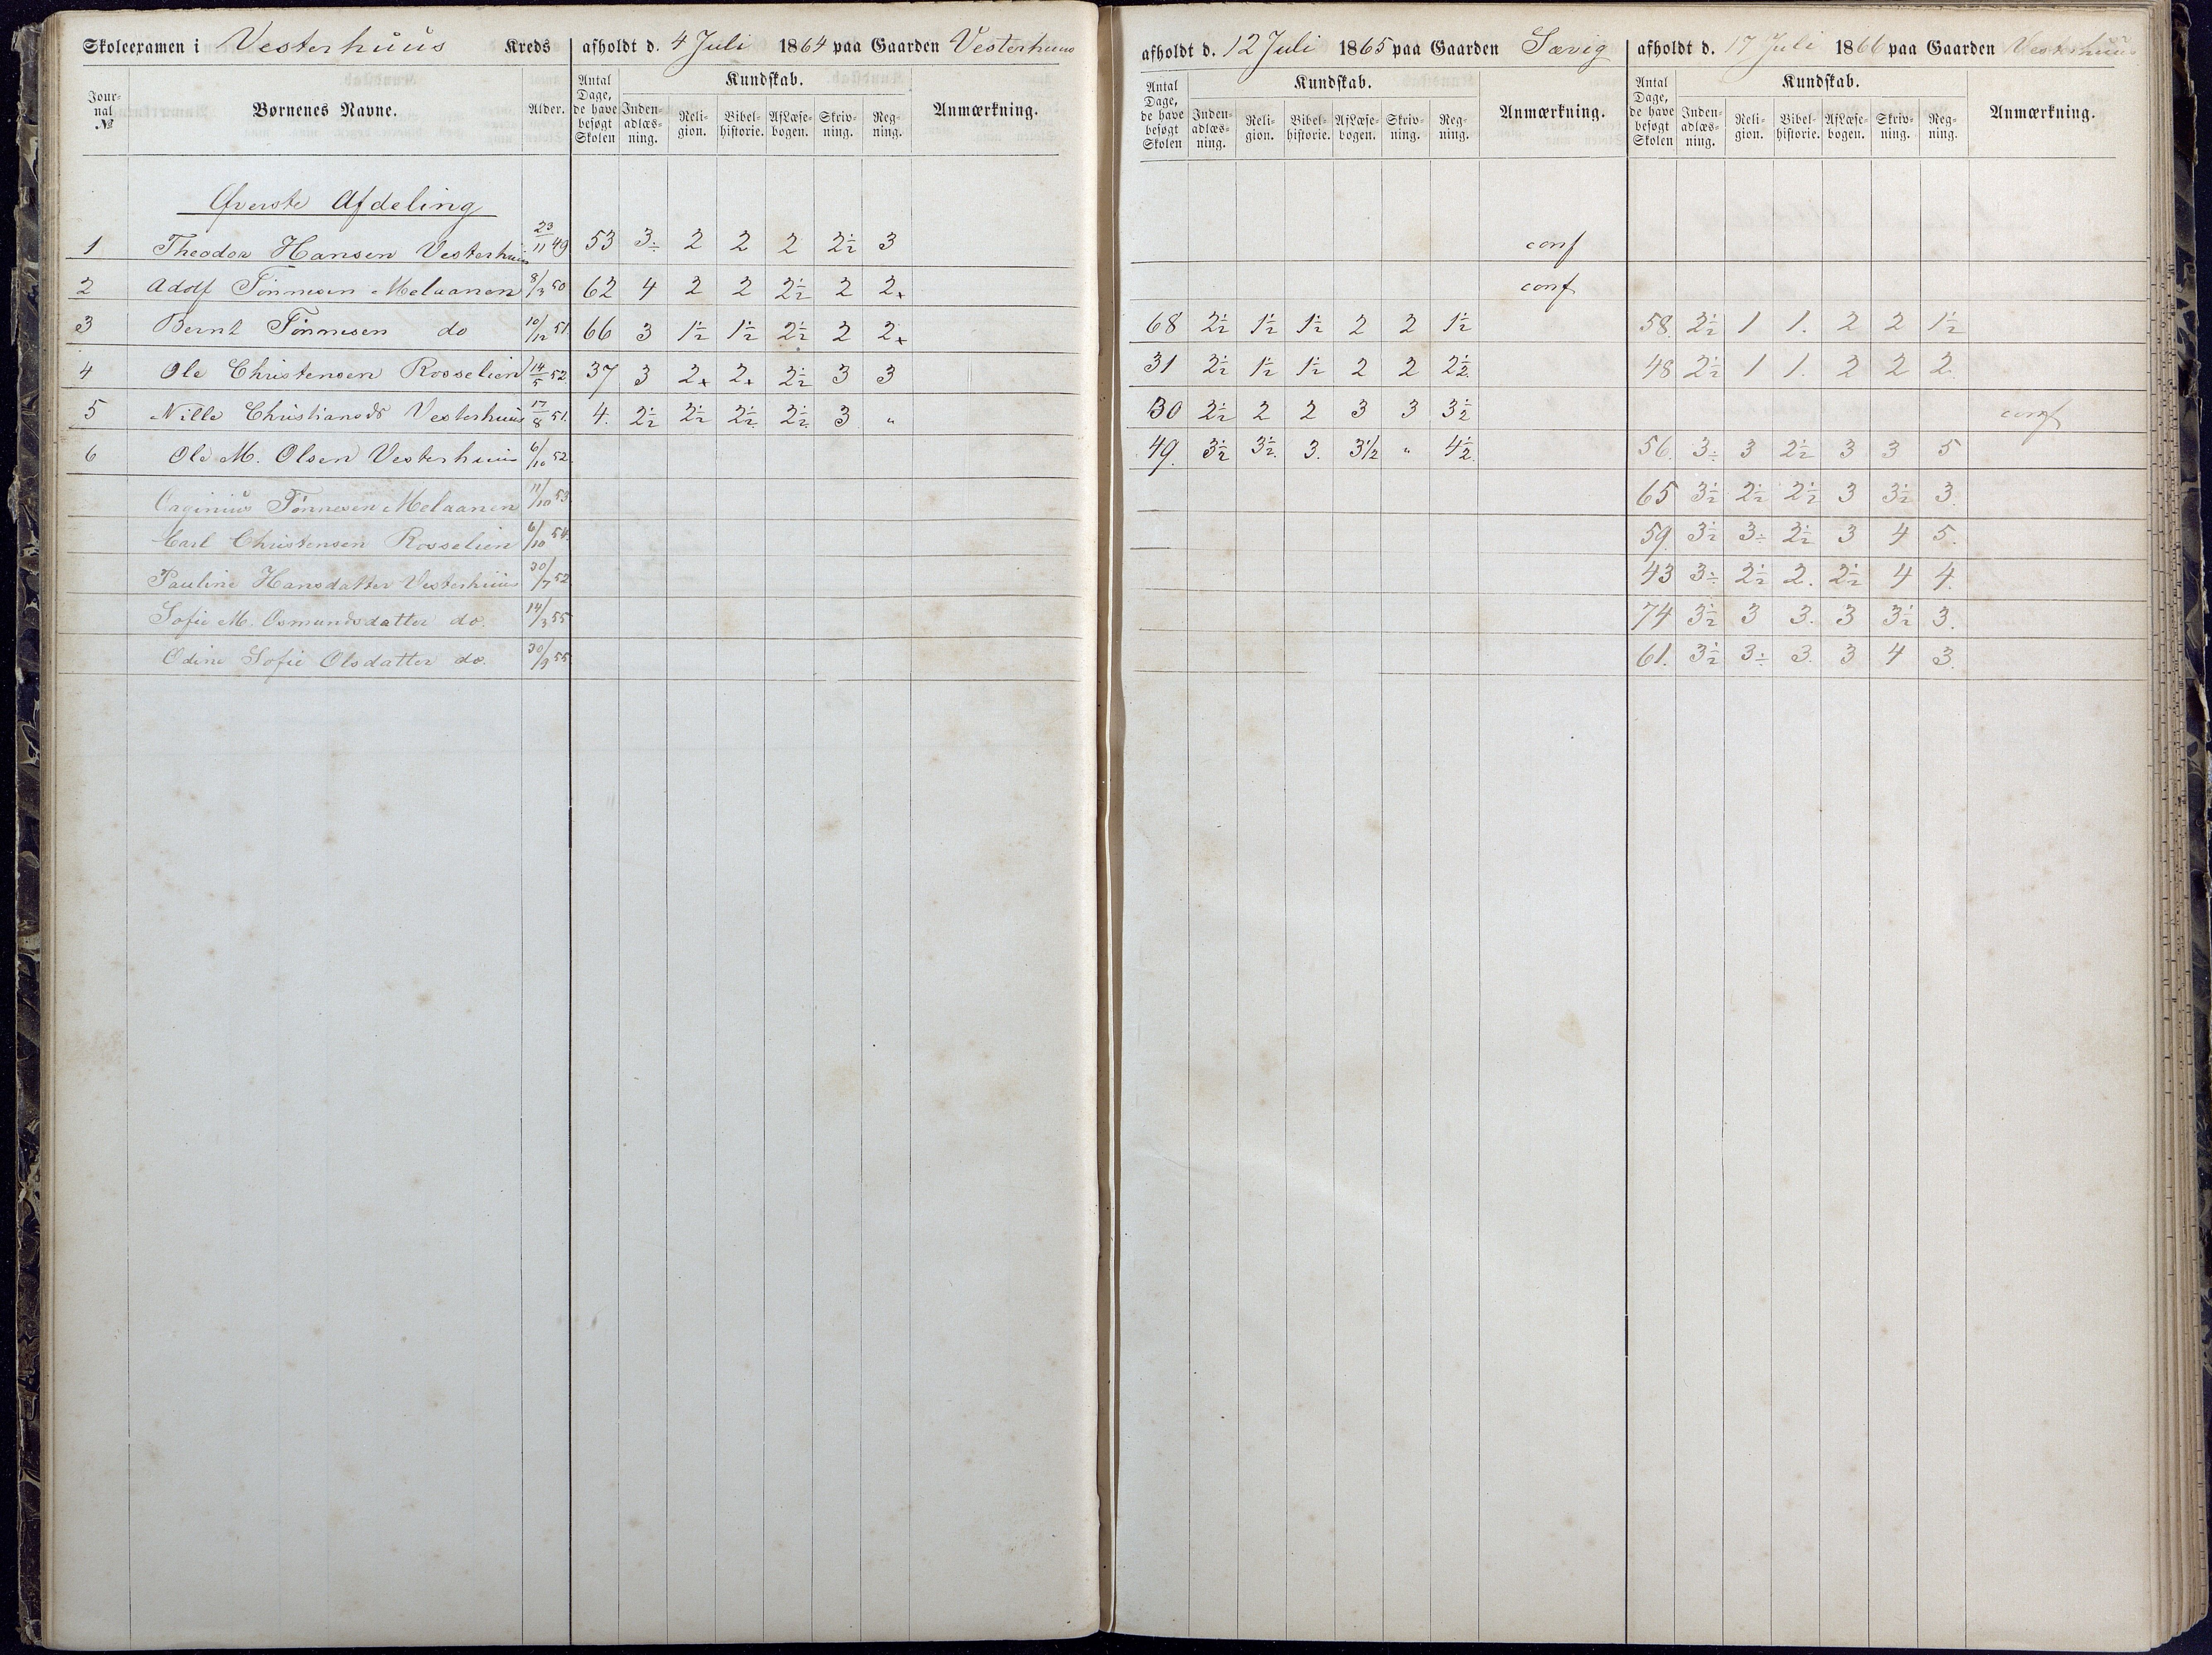 Skoleexamen i Vesterhuus Kreds afholdt d. 4 Juli 1864 paa Gaarden Vesterhuus
Jour-nal № Børnenes Navne. Alder. Antal Dage, de have besøgt Skolen Kundskab. Inden-adlæs-ning. Reli-gion. Bibel-historie. AfLæse-bogen. Skriv-ning. Reg-ning. Anmærkning.
Øverste Afdeling
1 Theodor Hansen Vesterhuus 23/11 49 53 3÷ 2 2 2 2½ 3
2 Adolf Tønnesen Melaanen 8/3 50 62 4 2 2 2½ 2 2+
3 Bernt Tønnesen do 10/12 51 66 3 1½ 1½ 2½ 2 2+
4 Ole Christensen Rosselien 14/5 52 37 3 2+ 2+ 2½ 3 3
5 Nille Christiansdr Vesterhuus 17/8 51. 4. 2½ 2½ 2½ 2½ 3 "
6 Ole M. Olsen Vesterhuus 6/10 52
Tønnesen Melaanen 11/10 53
Carl Christensen Rosselien 6/10 54.
Pauline Hansdatter Vesterhuus 30/7 52
Sofie M. Osmundsdatter do. 14/3 55
Odine Sofie Olsdatter do. 30/9 55
afholdt d. 12 Juli 1865 paa Gaarden Sævig
Antal Dage, de have besøgt Skolen Kundskab. Inden-adlæs-ning. Reli-gion. Bibel-historie. AfLæse-bogen. Skriv-ning. Reg-ning. Anmærkning.
conf
conf
68 2½ 1½ 1½ 2 2 1½
31 2½ 1½ 1½ 2 2 2½
30 2½ 2 2 3 3 3½
49. 3½ 3½ 3. 3½ " 4½
afholdt d. 17 Juli 1866 paa Gaarden Vesterhuus
Antal Dage, de have besøgt Skolen Kundskab. Inden-adlæs-ning. Reli-gion. Bibel-historie. AfLæse-bogen. Skriv-ning. Reg-ning. Anmærkning.
58. 2½ 1 1. 2 2 1½
48 2½ 1 1. 2 2 2.
conf
56. 3÷ 3 2½ 3 3 5
65 3½ 2½ 2½ 3 3½ 3.
59. 3½ 3÷ 2½ 3 4 5.
43 3÷ 2½ 2. 2½ 4 4.
74 3½ 3 3. 3 3½ 3.
61. 3½ 3÷ 3. 3 4 3.